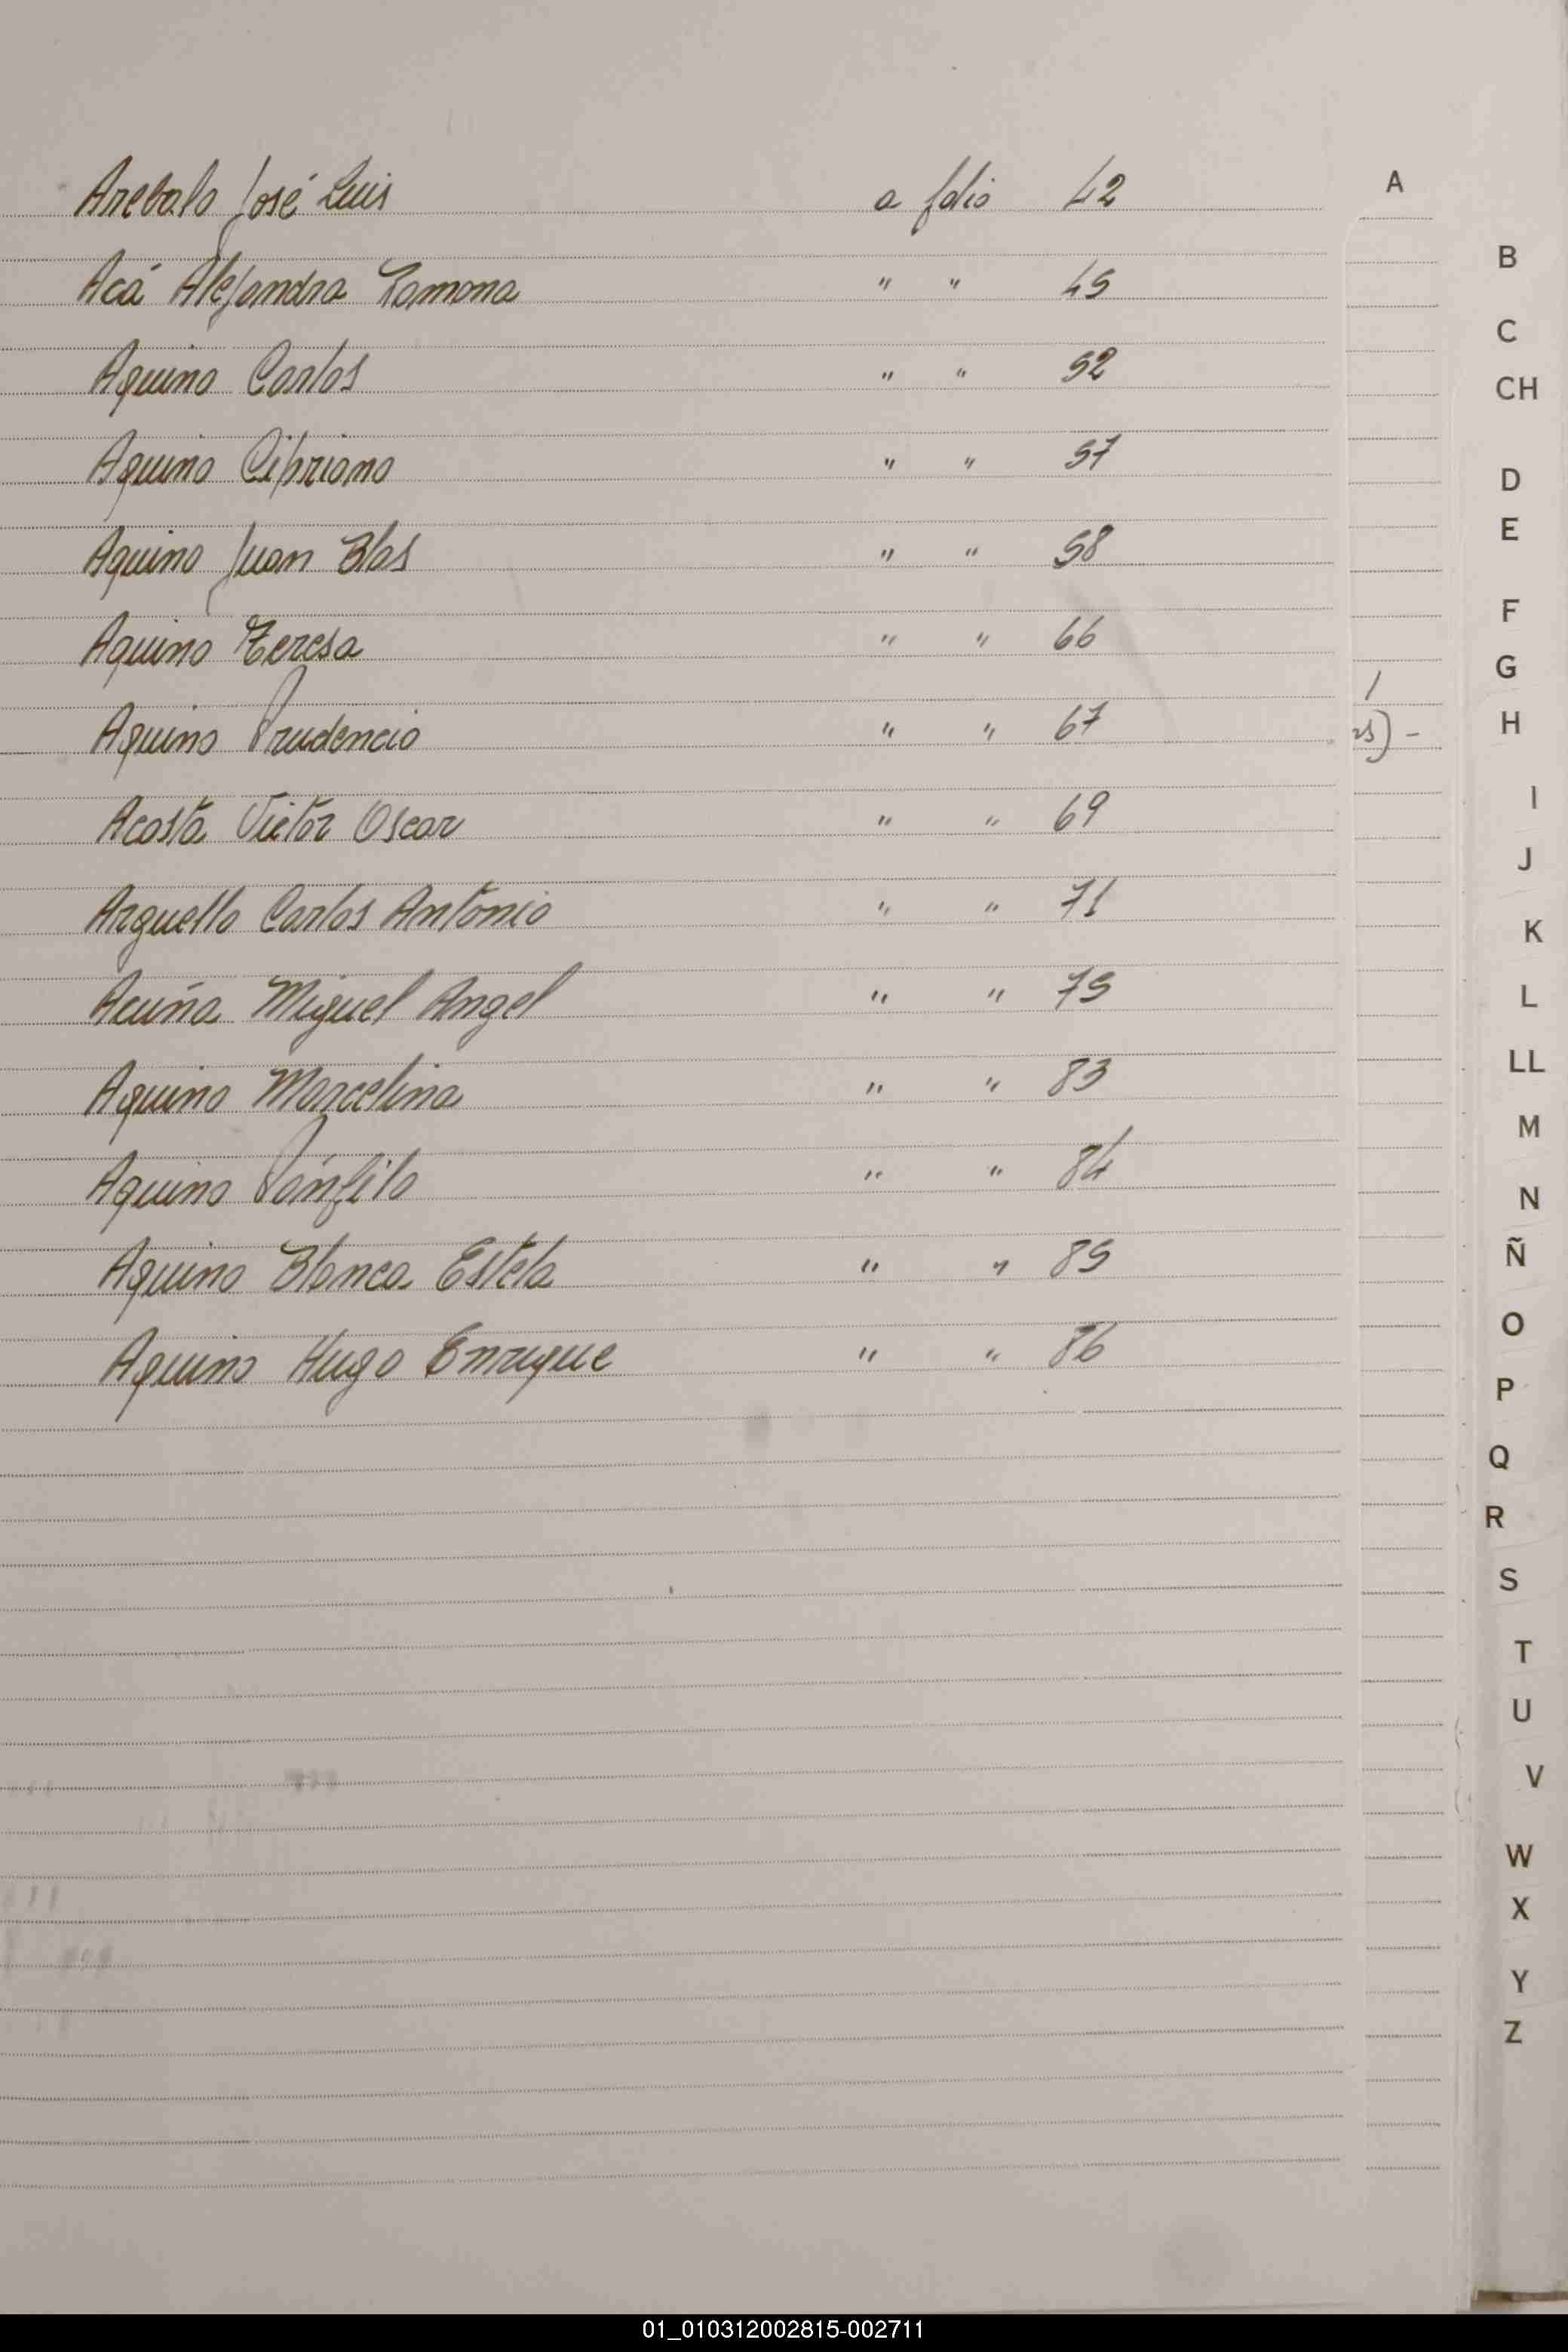 Arebalo José Luis a folio 42
Acá Alejandra Ramona " " 45
Aquino Carlos " " 52
Aquino Cipriano " " 57
Aquino Juan Blas " " 58
Aquino Teresa " " 66
Aquino Prudencio " " 67
Acosta Victor Oscar " " 69
Arguello Carlos Antonio " " 71
Acuña Miguel Angel " " 75
Aquino Marcelina " " 83
Aquino Pánfilo " " 84
Aquino Blanca Estela " " 85
Aquino Hugo Enrique " " 86
A
B
C
CH
D
E
F
G
H
I
J
K
L
LL
M
N
Ñ
O
P
Q
R
S
T
U
V
W
X
Y
Z
01_010312002815-002711